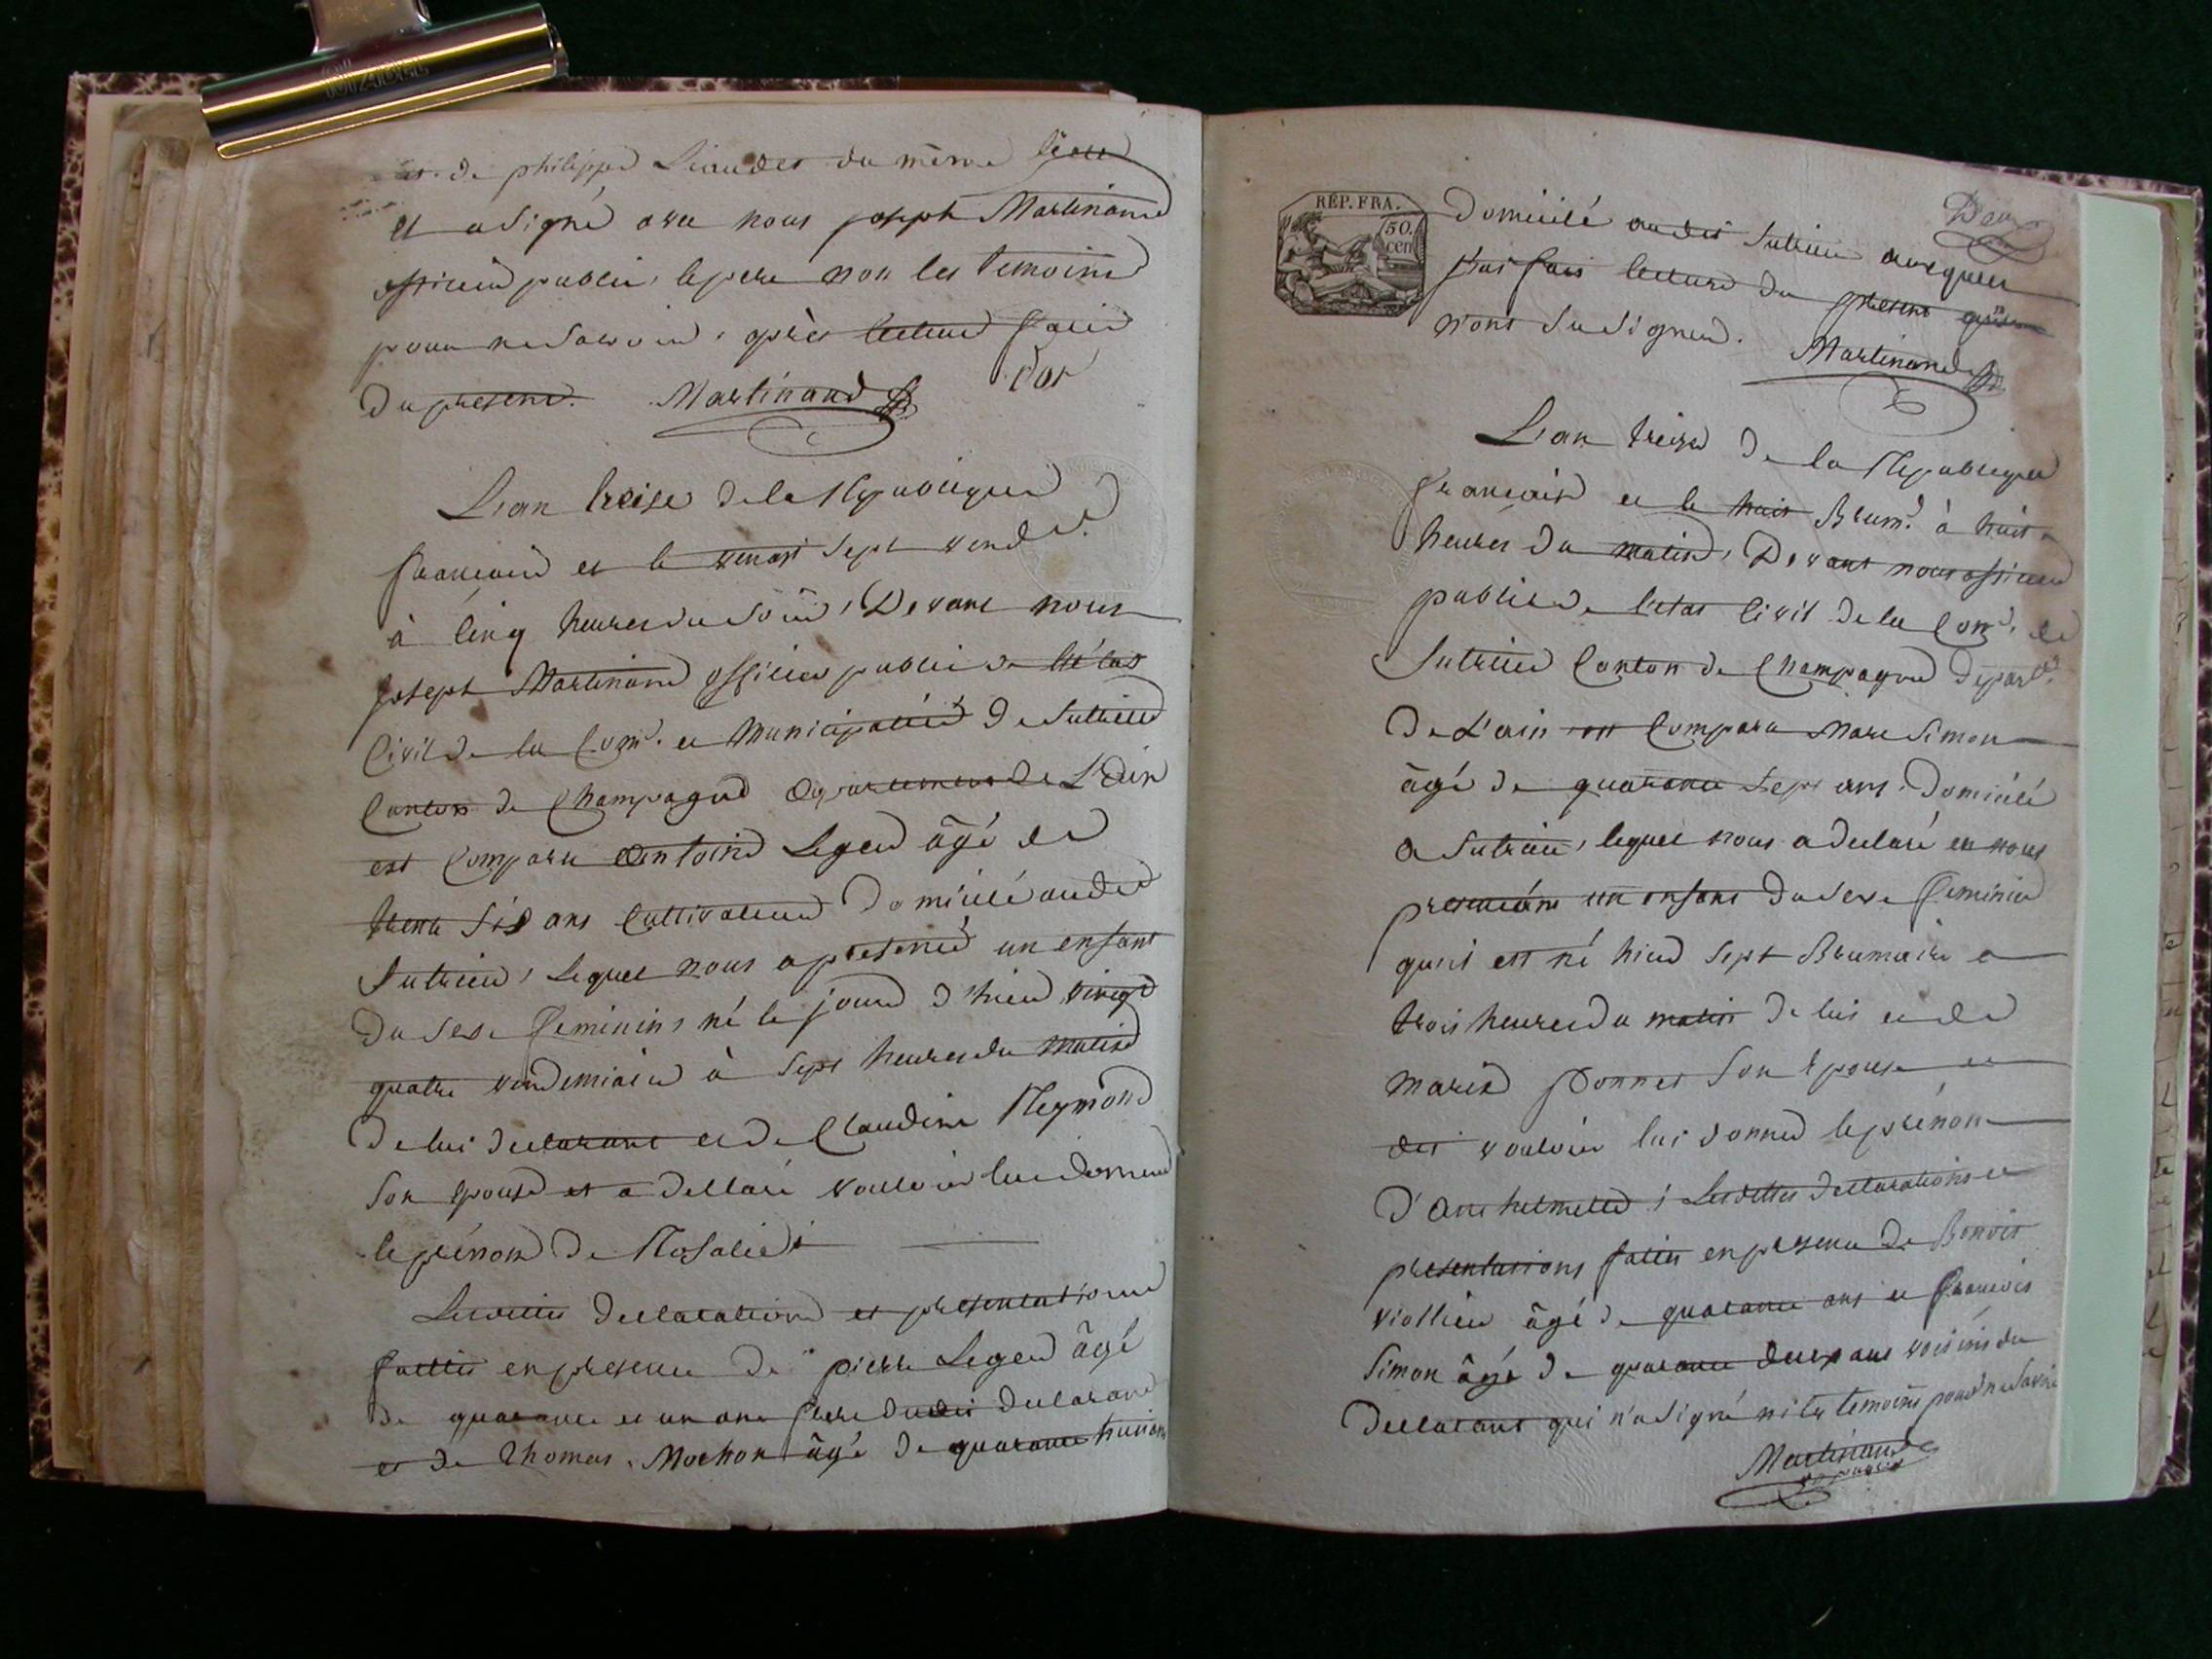 et de philippe Liaudet du même lieu
et a signé avec nous joseph Martinand
officier public, le pere non les temoins
pour ne savoir, après lecture faite
du present. Martinand
L'an treize de la Republique
francaise et le vingt sept vendre
à cinq heures du soir, Devant nous
joseph Martinand officier public de l'état
Civil de la Com. et Municipalité de Sutrieu
Canton de Champagne Departement de L'Ain
est Comparu antoine Leger âgé de
trente six ans Cultivateur Domicilié audit
Sutrieu, Lequel nous a presenté un enfant
du sexe feminin né le jour d'hier vingt
quatre vendemiaire à sept heures du matin
de lui declarant et de Claudine Reymond
son epouse et a dellaré vouloir lui donner
le prénom de Rosalie
Lesdittes declarations et presentations
faittes en presence de pierre Leger âgé
de quarante et un ans frere dudit declarant
et de Thomas Mochon âgé de quarante huit ans
RÉP. FRA.
50.
cen
Domicilié audit Sutrieu auxquels
j'ai fait lecture du present qui
n'ont su signer.
Martinand
L'an treize de la Republique
francaise et le huit Brum. à huit
heures du matin, Devant nous officier
public de l'état Civil de la Com. de
Sutrieu Canton de Champagne Depart.
De L'ain est Comparu Marc Simon
âgé de quarante sept ans Domicilié
a Sutrieu, lequel nous a declaré et nous
presenté un enfant du sexe feminin
qu'il est né hier sept Brumaire a
trois heures du matin de lui et de
Marie Ponnet son epouse et
dit vouloir lui donner le prénom
d'Anthelmette; Lesdittes declarations et
presentations faites en presence de Benoit
viollier âgé de quarante ans et francois
Simon âgé de quarante deux ans voisins du
declarant qui n'a signé ni les temoins pour ne savoir
Martinand